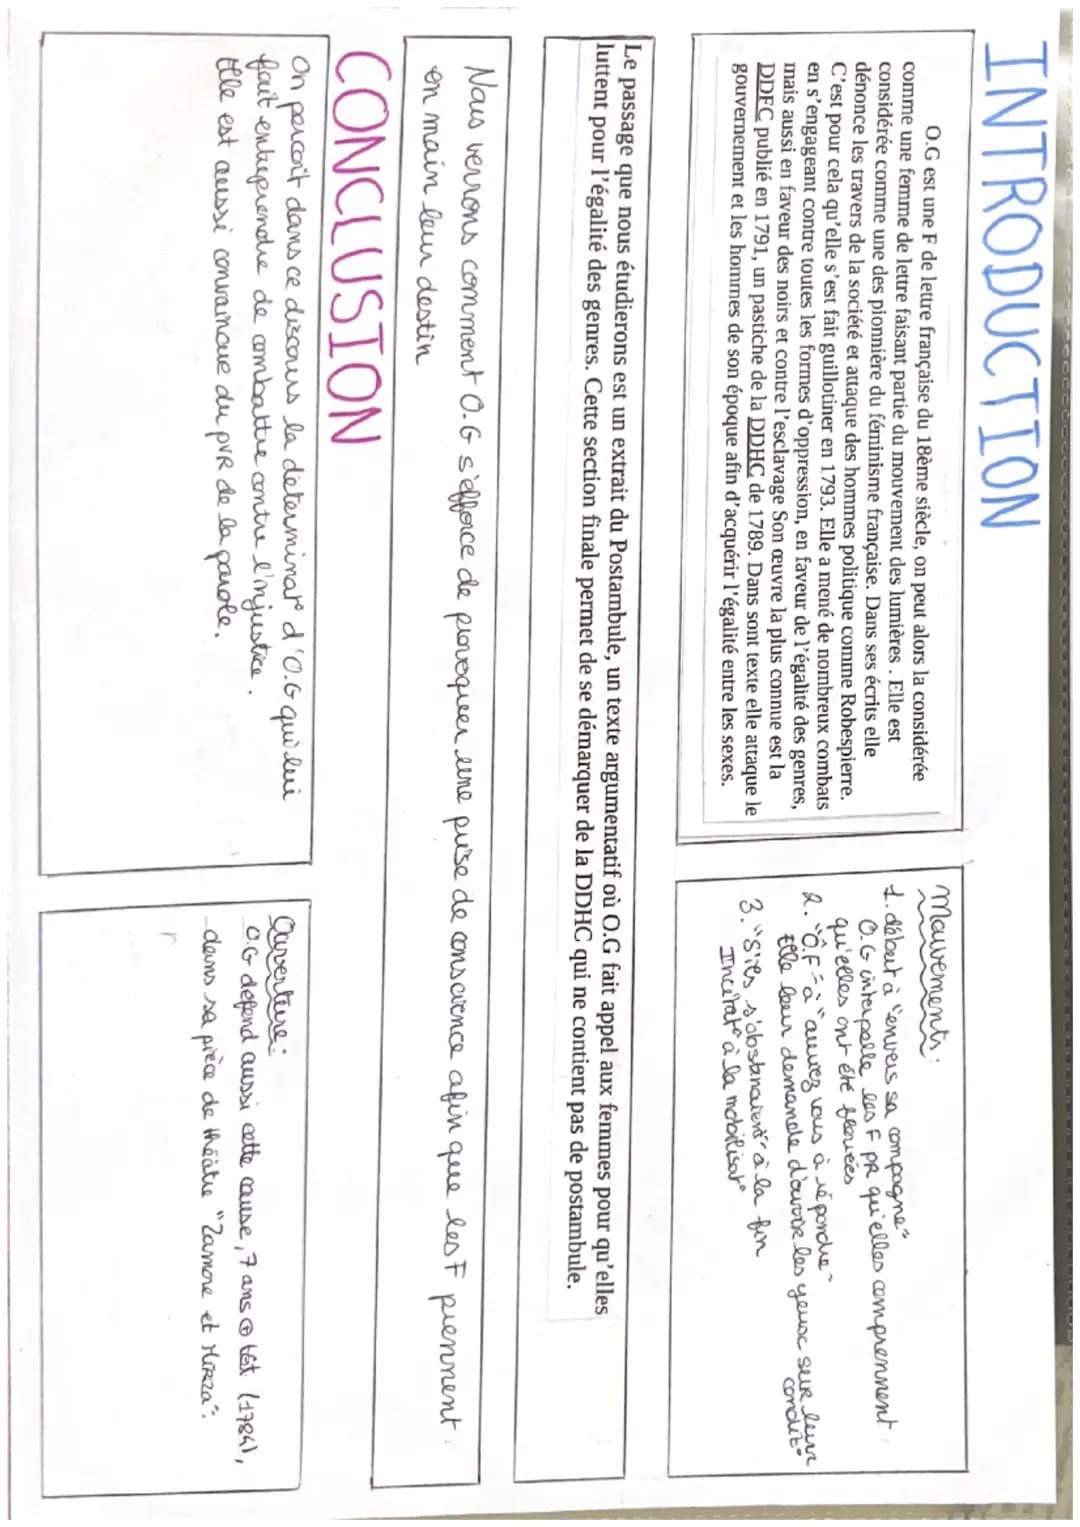 INTRODUCTION
O.G est une F de lettre française du 18ème siècle, on peut alors la considérée
comme une femme de lettre faisant partie du mouvement des lumières . Elle est
considérée comme une des pionnière du féminisme française. Dans ses écrits elle
dénonce les travers de la société et attaque des hommes politique comme Robespierre.
C'est pour cela qu'elle s'est fait guillotiner en 1793. Elle a mené de nombreux combats
en s'engageant contre toutes les formes d'oppression, en faveur de l'égalité des genres,
mais aussi en faveur des noirs et contre l'esclavage Son œuvre la plus connue est la
DDFC publié en 1791, un pastiche de la DDHC de 1789. Dans sont texte elle attaque le
gouvernement et les hommes de son époque afin d'acquérir l'égalité entre les sexes.
Mouvements :
1. début à "envers sa compagne"
O.G interpelle les F PR qu'elles comprennent
qu'elles ont été flouées
2. "Ô F" à "auriez vous à répondre"
Elle leur demande d'ouvrir les yeux sur leur
condit°
3. "S'ils s'obstinaient" à la fin
Incitat° à la mobilisat°
Le passage que nous étudierons est un extrait du Postambule, un texte argumentatif où O.G fait appel aux femmes pour qu'elles
luttent pour l'égalité des genres. Cette section finale permet de se démarquer de la DDHC qui ne contient pas de postambule.
Nous verrons comment O.G s'efforce de provoquer une prise de conscience afin que les F prennent
en main leur destin
CONCLUSION
On perçoit dans ce discours la déterminat° d'O.G qui lui
fait entreprendre de combattre contre l'injustice.
Elle est aussi convaincue du pvR de la parole.
Ouverture :
O.G défend aussi cette cause, 7 ans ⊕ tôt (1784),
dans sa pièce de théâtre "Zamore et Mirza".